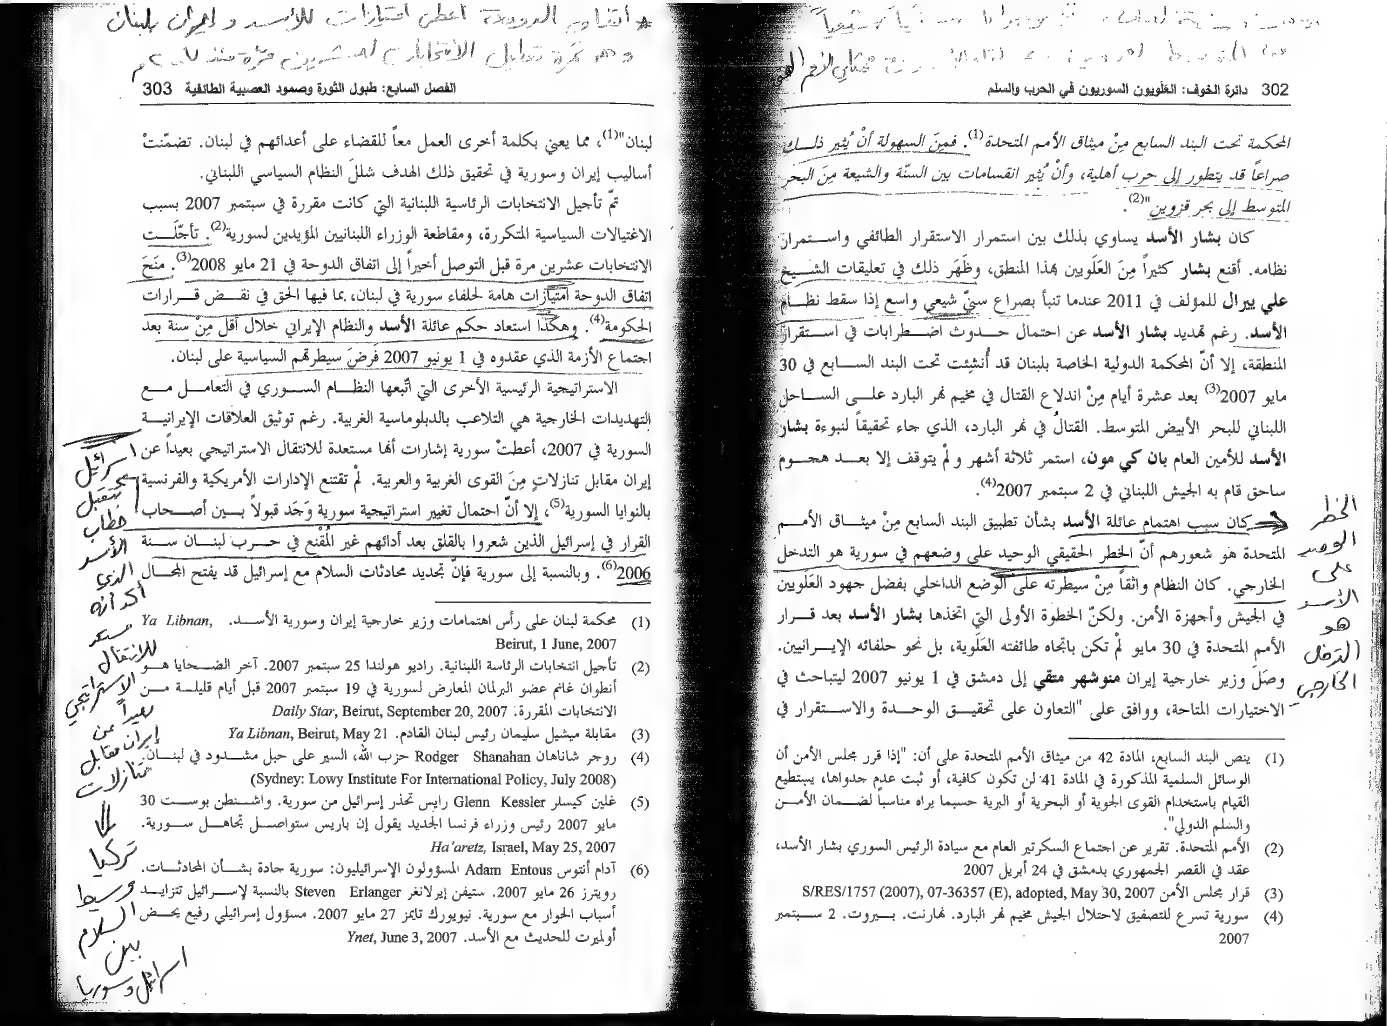 302 دائرة الخوف: العَلَويون السوريون في الحرب والسلم
المحكمة تحت البند السابع مِنْ ميثاق الأمم المتحدة(1). فمِنَ السهولة أنْ يُثير ذلـــك
صراعاً قد يتطور إلى حرب أهلية، وأنْ يُثير انقسامات بين السنّة والشيعة مِنَ البحر
المتوسط إلى بحر قزوين"(2).
كان بشار الأسد يساوي بذلك بين استمرار الاستقرار الطائفي واســتمرار
نظامه. أقنع بشار كثيراً مِنَ العَلَويين بهذا المنطق، وظَهَر ذلك في تعليقات الشــيخ
علي بيرال للمؤلف في 2011 عندما تنبأ بصراع سنيّ شيعي واسع إذا سقط نظــام
الأسد. رغم تهديد بشار الأسد عن احتمال حــدوث اضــطرابات في اســتقرار
المنطقة، إلا أنّ المحكمة الدولية الخاصة بلبنان قد أُنشئت تحت البند الســابع في 30
مايو 2007(3) بعد عشرة أيام مِنْ اندلاع القتال في مخيم نهر البارد علــى الســاحل
اللبناني للبحر الأبيض المتوسط. القتالُ في نهر البارد، الذي جاء تحقيقاً لنبوءة بشار
الأسد للأمين العام بان كي مون، استمر ثلاثة أشهر ولمْ يتوقف إلا بعــد هجــوم
ساحق قام به الجيش اللبناني في 2 سبتمبر 2007(4).
كان سبب اهتمام عائلة الأسد بشأن تطبيق البند السابع مِنْ ميثــاق الأمــم
المتحدة هو شعورهم أنّ الخطر الحقيقي الوحيد على وضعهم في سورية هو التدخل
الخارجي. كان النظام واثقاً مِنْ سيطرته على الوضع الداخلي بفضل جهود العَلَويين
في الجيش وأجهزة الأمن. ولكنّ الخطوة الأولى التي اتخذها بشار الأسد بعد قــرار
الأمم المتحدة في 30 مايو لمْ تكن باتجاه طائفته العَلَوية، بل نحو حلفائه الإيــرانيين.
وصَلَ وزير خارجية إيران منوشهر متقي إلى دمشق في 1 يونيو 2007 ليتباحث في
الاختيارات المتاحة، ووافق على "التعاون على تحقيــق الوحــدة والاســتقرار في
(1) ينص البند السابع، المادة 42 من ميثاق الأمم المتحدة على أن: "إذا قرر مجلس الأمن أن
الوسائل السلمية المذكورة في المادة 41 لن تكون كافية، أو ثبت عدم جدواها، يستطيع
القيام باستخدام القوى الجوية أو البحرية أو البرية حسبما يراه مناسباً لضــمان الأمــن
والسّلم الدولي".
(2) الأمم المتحدة. تقرير عن اجتماع السكرتير العام مع سيادة الرئيس السوري بشار الأسد،
عقد في القصر الجمهوري بدمشق في 24 أبريل 2007
(3) قرار مجلس الأمن S/RES/1757 (2007), 07-36357 (E), adopted, May 30, 2007
(4) سورية تسرع للتصفيق لاحتلال الجيش مخيم نهر البارد. نهارنت. بــيروت. 2 ســبتمبر
2007
الخطر
الوحيد
على
الأسد
هو
التدخل
الخارجي
* اتفاق الدوحة أعطى امتيازات للأسد و إيران بلبنان
الفصل السابع: طبول الثورة وصمود العصبية الطائفية 303
لبنان"(1)، مما يعني بكلمة أخرى العمل معاً للقضاء على أعدائهم في لبنان. تضمّنتْ
أساليب إيران وسورية في تحقيق ذلك الهدف شللَ النظام السياسي اللبناني.
تمّ تأجيل الانتخابات الرئاسية اللبنانية التي كانت مقررة في سبتمبر 2007 بسبب
الاغتيالات السياسية المتكررة، ومقاطعة الوزراء اللبنانيين المؤيدين لسورية(2). تأجّلَــت
الانتخابات عشرين مرة قبل التوصل أخيراً إلى اتفاق الدوحة في 21 مايو 2008(3). منَحَ
اتفاق الدوحة امتيازات هامة لحلفاء سورية في لبنان، بما فيها الحق في نقــض قــرارات
الحكومة(4). وهكذا استعاد حكم عائلة الأسد والنظام الإيراني خلال أقل مِنْ سنة بعد
اجتماع الأزمة الذي عقدوه في 1 يونيو 2007 فَرضَ سيطرتهم السياسية على لبنان.
الاستراتيجية الرئيسية الأخرى التي اتّبعها النظام الســوري في التعامــل مــع
التهديدات الخارجية هي التلاعب بالدبلوماسية الغربية. رغم توثيق العلاقات الإيرانيــة
السورية في 2007، أعطتْ سورية إشارات أنها مستعدة للانتقال الاستراتيجي بعيداً عن
إيران مقابل تنازلاتٍ مِنَ القوى الغربية والعربية. لمْ تقتنع الإدارات الأمريكية والفرنسية
بالنوايا السورية(5)، إلا أنّ احتمال تغيير استراتيجية سورية وَجَد قبولاً بــين أصــحاب
القرار في إسرائيل الذين شعروا بالقلق بعد أدائهم غير المُقْنِع في حــرب لبنــان ســنة
2006(6). وبالنسبة إلى سورية فإنّ تجديد محادثات السلام مع إسرائيل قد يفتح المجــال
(1) محكمة لبنان على رأس اهتمامات وزير خارجية إيران وسورية الأســد. Ya Libnan,
Beirut, 1 June, 2007
(2) تأجيل انتخابات الرئاسة اللبنانية. راديو هولندا 25 سبتمبر 2007. آخر الضــحايا هــو
أنطوان غانم عضو البرلمان المعارض لسورية في 19 سبتمبر 2007 قبل أيام قليلــة مــن
الانتخابات المقررة. Daily Star, Beirut, September 20, 2007
(3) مقابلة ميشيل سليمان رئيس لبنان القادم. Ya Libnan, Beirut, May 21
(4) روجر شاناهان Rodger Shanahan حزب الله، السير على حبل مشــدود في لبنــان.
(Sydney: Lowy Institute For International Policy, July 2008)
(5) غلين كيسلر Glenn Kessler رايس تحذر إسرائيل من سورية. واشــنطن بوســت 30
مايو 2007 رئيس وزراء فرنسا الجديد يقول إن باريس ستواصــل تجاهــل ســورية.
Ha'aretz, Israel, May 25, 2007
(6) آدام أنتوس Adam Entous المسؤولون الإسرائيليون: سورية جادة بشــأن المحادثــات.
رويترز 26 مايو 2007. ستيفن إيرلانغر Steven Erlanger بالنسبة لإســرائيل تتزايــد
أسباب الحوار مع سورية. نيويورك تايمز 27 مايو 2007. مسؤول إسرائيلي رفيع يحــض
أولمرت للحديث مع الأسد. Ynet, June 3, 2007
اسرائيل
تتقبل
خطاب
الأسد
الذي
أكد انه
مستعد
للانتقال
الاستراتيجي
بعيداً عن
إيران مقابل
تنازلات
تركيا
وسيط
السلام
بين
اسرائيل وسوريا